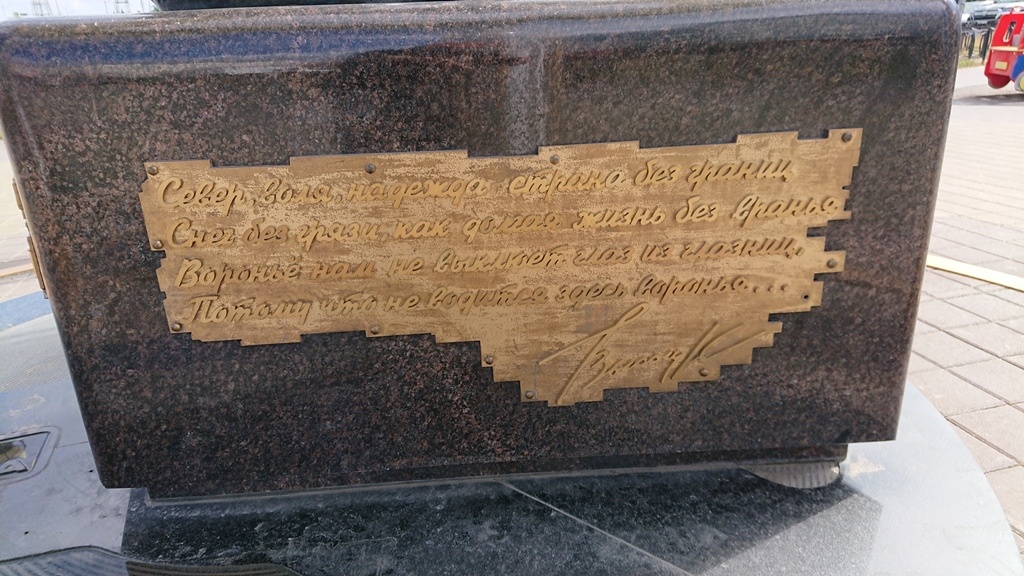 Север, воля, надежда, страна без границ
Снег без грязи, как долгая жизнь без вранья.
Вороньё нам не выклюет глаз из глазниц,
Потому что не водится здесь воронья...